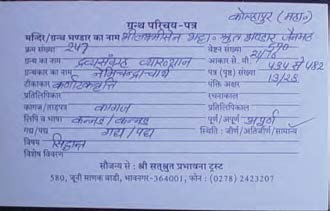 कोल्हापुर (महा.)
ग्रन्थ परिचय-पत्र
मन्दिर/ग्रन्थ भण्डार का नाम श्री लक्ष्मीसेन भट्टा. श्रुत भण्डार जैनमठ
क्रम संख्या 247 वेष्टन संख्या 590
ग्रन्थ का नाम द्रव्यसंग्रह व्याख्यान आकार से. मी.
ग्रन्थकार का नाम नेमिचन्द्राचार्य पत्र (पृष्ठ) संख्या
टीकाकार कर्णाटकवृत्ति पंक्ति अक्षर 13/28
प्रतिलिपिकार रचनाकाल
कागज/ताड़पत्र कागज प्रतिलिपिकाल
लिपि व भाषा कन्नड / कन्नड पूर्ण/अपूर्ण अपूर्ण
गद्य/पद्य गद्य / पद्य स्थिति : जीर्ण/अतिजीर्ण/सामान्य
विषय सिद्धान्त
विशेष विवरण
सौजन्य से : श्री सत्श्रुत प्रभावना ट्रस्ट
580, जूनी माणक वाडी, भावनगर-364001, फोन : (0278) 2423207